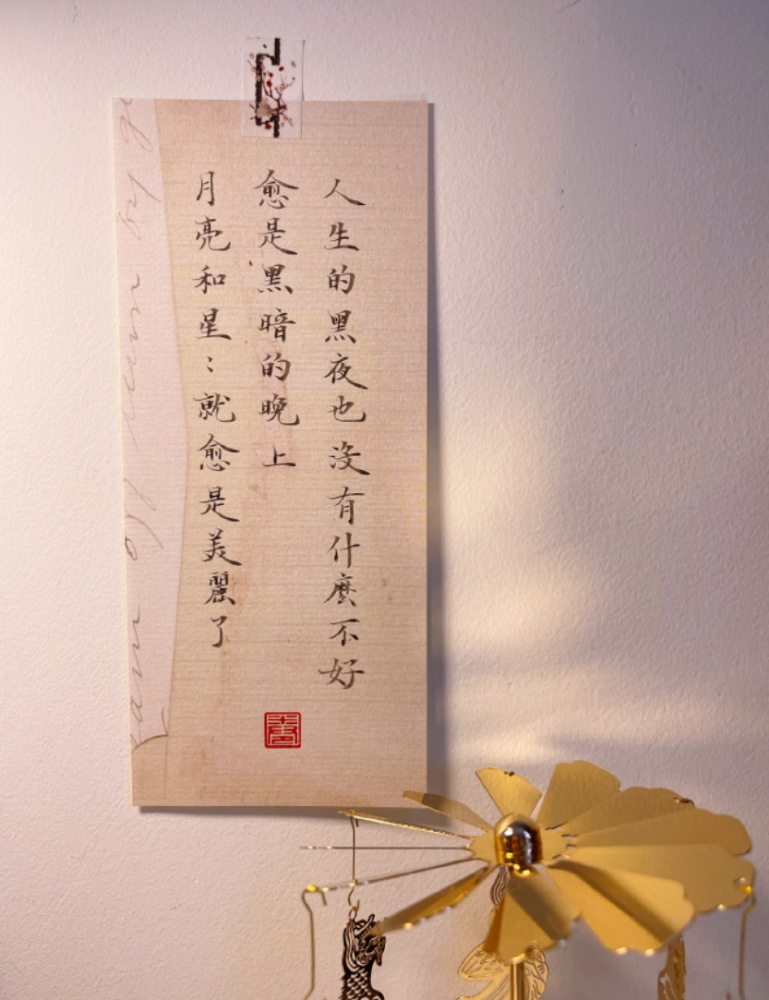 人生的黑夜也沒有什麼不好
愈是黑暗的晚上
月亮和星：就愈是美麗了